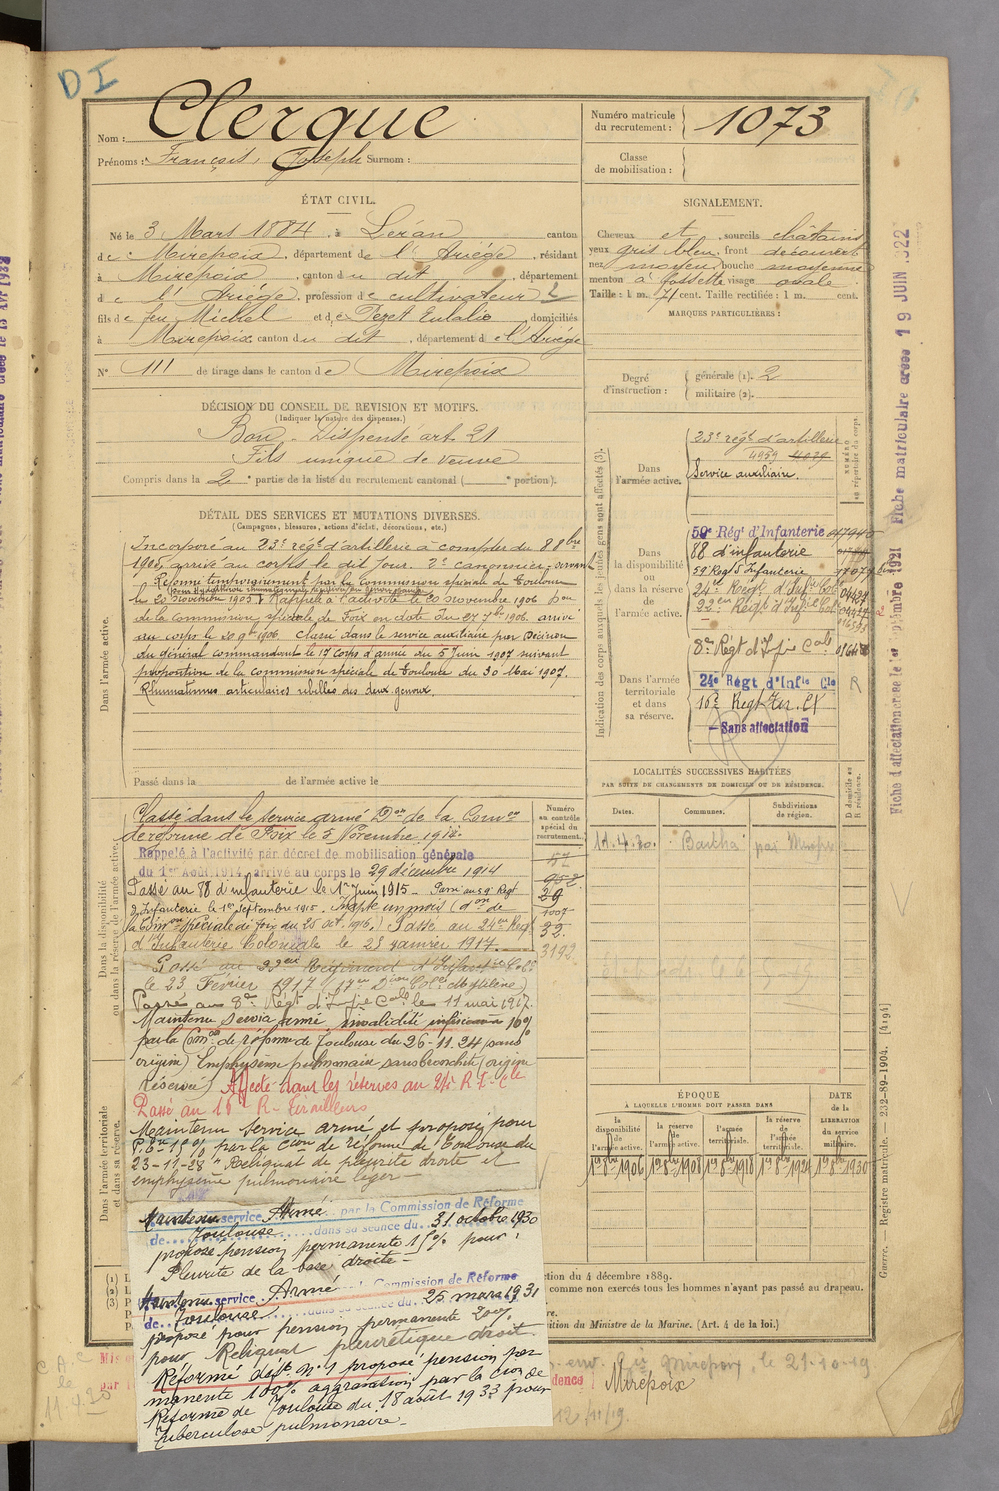 DI
Nom : Clergue
Prénoms : François, Joseph Surnom :
Numéro matricule du recrutement : 1073
Classe de mobilisation :
ÉTAT CIVIL.
Né le 3 Mars 1884, à Léran canton
de Mirepoix, département de l'Ariège, résidant
à Mirepoix, canton du dit, département
de l'Ariège, profession de cultivateur 2
fils de feu Michel et de Pezet Eulalie, domiciliés
à Mirepoix canton du dit, département de l'Ariège
N° 111 de tirage dans le canton de Mirepoix
SIGNALEMENT.
Cheveux et sourcils châtains
yeux gris bleu, front découvert
nez moyen, bouche moyenne
menton à fossette visage ovale
Taille : 1 m. 71 cent. Taille rectifiée : 1 m. cent.
MARQUES PARTICULIÈRES :
Degré d'instruction : générale (1). 2
militaire (2).
DÉCISION DU CONSEIL DE REVISION ET MOTIFS.
(Indiquer la nature des dispenses.)
Bon - Dispensé art. 21
Fils unique de veuve
Compris dans la 2e partie de la liste du recrutement cantonal ( portion).
DÉTAIL DES SERVICES ET MUTATIONS DIVERSES.
(Campagnes, blessures, actions d'éclat, décorations, etc.)
Dans l'armée active.
Incorporé au 23e régt d'artillerie à compter du 8 8bre
1905, arrivé au corps le dit jour. 2e canonnier servant
Réformé temporairement par la Commission spéciale de Toulouse
le 20 novembre 1905. Rappelé à l'activité le 20 novembre 1906 par
de la commission spéciale de Foix en date du 27 7bre 1906. arrivé
au corps le 20 9bre 1906. Classé dans le service auxiliaire par Décision
du général commandant le 17e Corps d'armée du 5 Juin 1907 suivant
proposition de la commission spéciale de Toulouse du 30 Mai 1907.
Rhumatismes articulaires rebelles des deux genoux.
Passé dans la de l'armée active le
Indication des corps auxquels les jeunes gens sont affectés (3).
NUMÉRO au répertoire du corps.
Dans l'armée active.
23e régt d'artillerie
4959 4039
Service auxiliaire.
Dans la disponibilité ou dans la réserve de l'armée active.
59e Régt d'Infanterie
88 d'infanterie
59 Regt d'Infanterie
24e Regt d'Infie Cole
22e Regt d'Infie Col
8e Régt d'Infie Cale
Dans l'armée territoriale et dans sa réserve.
24e Régt d'Infie Cle R
16e Regt Ter. CX
- Sans affectation
LOCALITÉS SUCCESSIVES HABITÉES
PAR SUITE DE CHANGEMENTS DE DOMICILE OU DE RÉSIDENCE.
Dates. Communes. Subdivisions de région. D domicile ou R résidence.
11.4.30. Bautha par
Dans la disponibilité ou dans la réserve de l'armée active.
Numéro au contrôle spécial du recrutement.
Classé dans le service armé Don de la Comon
de réforme de Foix le 5 Novembre 1914.
Rappelé à l'activité par décret de mobilisation générale
du 1er Août 1914, arrivé au corps le 29 décembre 1914
Passé au 88 d'infanterie le 1er Juin 1915 - Passé au 59e Regt
d'Infanterie le 1er Septembre 1915. Inapte un mois (don de
la Comon spéciale de Foix du 25 oct. 1916.) Passé au 24e Regt
d'Infanterie Coloniale le 23 janvier 1917.
952
29
1007
32
3192
Passé au 22e Régiment d'Infanterie Cole
le 23 Février 1917 (17e Don Cole Mytilène)
Passé au 8e Regt d'Infie Cale le 11 mai 1917.
Maintenu service armé invalidité 10%
par la Comon de réforme de Toulouse du 26-11-24 (sans
origine) Emphysème pulmonaire sans bronchite (origine
réservée) Affecté dans les réserves au 24e R.I. Cle
Passé au 16e R. Tirailleurs
Dans l'armée territoriale et dans sa réserve.
Maintenu Service armé et proposé pour
P. 15% par la Cion de réforme de Toulouse du
23-11-28 "Reliquat de pleurite droite et
emphysème pulmonaire léger -
Maintenu service Armé par la Commission de Réforme
de Toulouse dans sa séance du 31 octobre 1930
proposé pension permanente 15% pour :
Pleurite de la base droite -
Maintenu service Armé la Commission de Réforme
de Toulouse dans sa séance du 25 mars 1931
proposé pour pension permanente 20%
pour Reliquat pleurétique droit.
Réformé déft. N° 1 proposé pension per
manente 100% aggravation par la Cion de
Réforme de Toulouse du 18 août 1933 pour
tuberculose pulmonaire -
ÉPOQUE
À LAQUELLE L'HOMME DOIT PASSER DANS
la disponibilité de l'armée active. la réserve de l'armée active. l'armée territoriale. la réserve de l'armée territoriale.
DATE de la LIBÉRATION du service militaire.
1er 8bre 1906 1er 8bre 1908 1er 8bre 1918 1er 8bre 1924 1er 8bre 1930
(1)
(2)
(3)
ction du 4 décembre 1889.
comme non exercés tous les hommes n'ayant pas passé au drapeau.
ition du Ministre de la Marine. (Art. 4 de la loi.)
Mirepoix, le 21-10-19
dence Mirepoix
12/11/19.
C.A.C
le
11.4.30
Guerre. — Registre matricule. — 232-89-1904. [4194]
Fiche d'affectation créée le 1er Septembre 1921 Fiche matriculaire créée 19 JUIN 1922